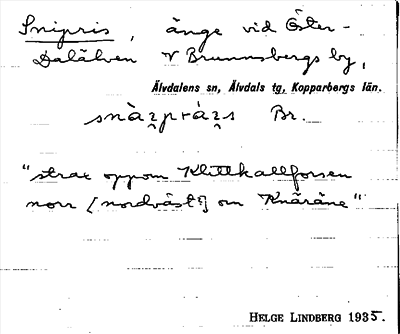 Snipris, änge vid Öster-
Dalälven V Brunnsbergs by,
Älvdalens sn, Älvdals tg, Kopparbergs län.
Br.
"strax oppom Klittkallforsen
norr [nordväst?] om Knäräne"
HELGE LINDBERG 1935.